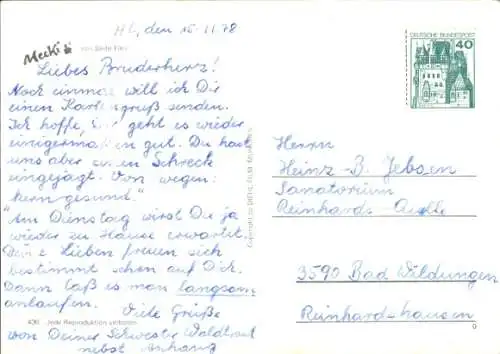 Hl, den 15.11.78
Mecki
Liebes Bruderherz!
Noch einmal will ich Dir
einen Kartengruß senden.
Ich hoffe, es geht es wieder
einigermaßen gut. Du hast
uns aber einen Schreck
eingejagt. Von wegen:
"kerngesund."
Am Dienstag wirst Du ja
wieder zu Hause erwartet.
Deine Lieben freuen sich
bestimmt schon auf Dich.
Dann laß es man langsam
anlaufen.
Viele Grüße
von Deiner Schwester Waldtraut
nebst Anhang
430 Jede Reproduktion verboten
Copyright by
DEUTSCHE BUNDESPOST
40
Herrn
Heinz-B. Jebsen
Sanatorium
Reinhards Quelle
3590 Bad Wildungen
Reinhardshausen